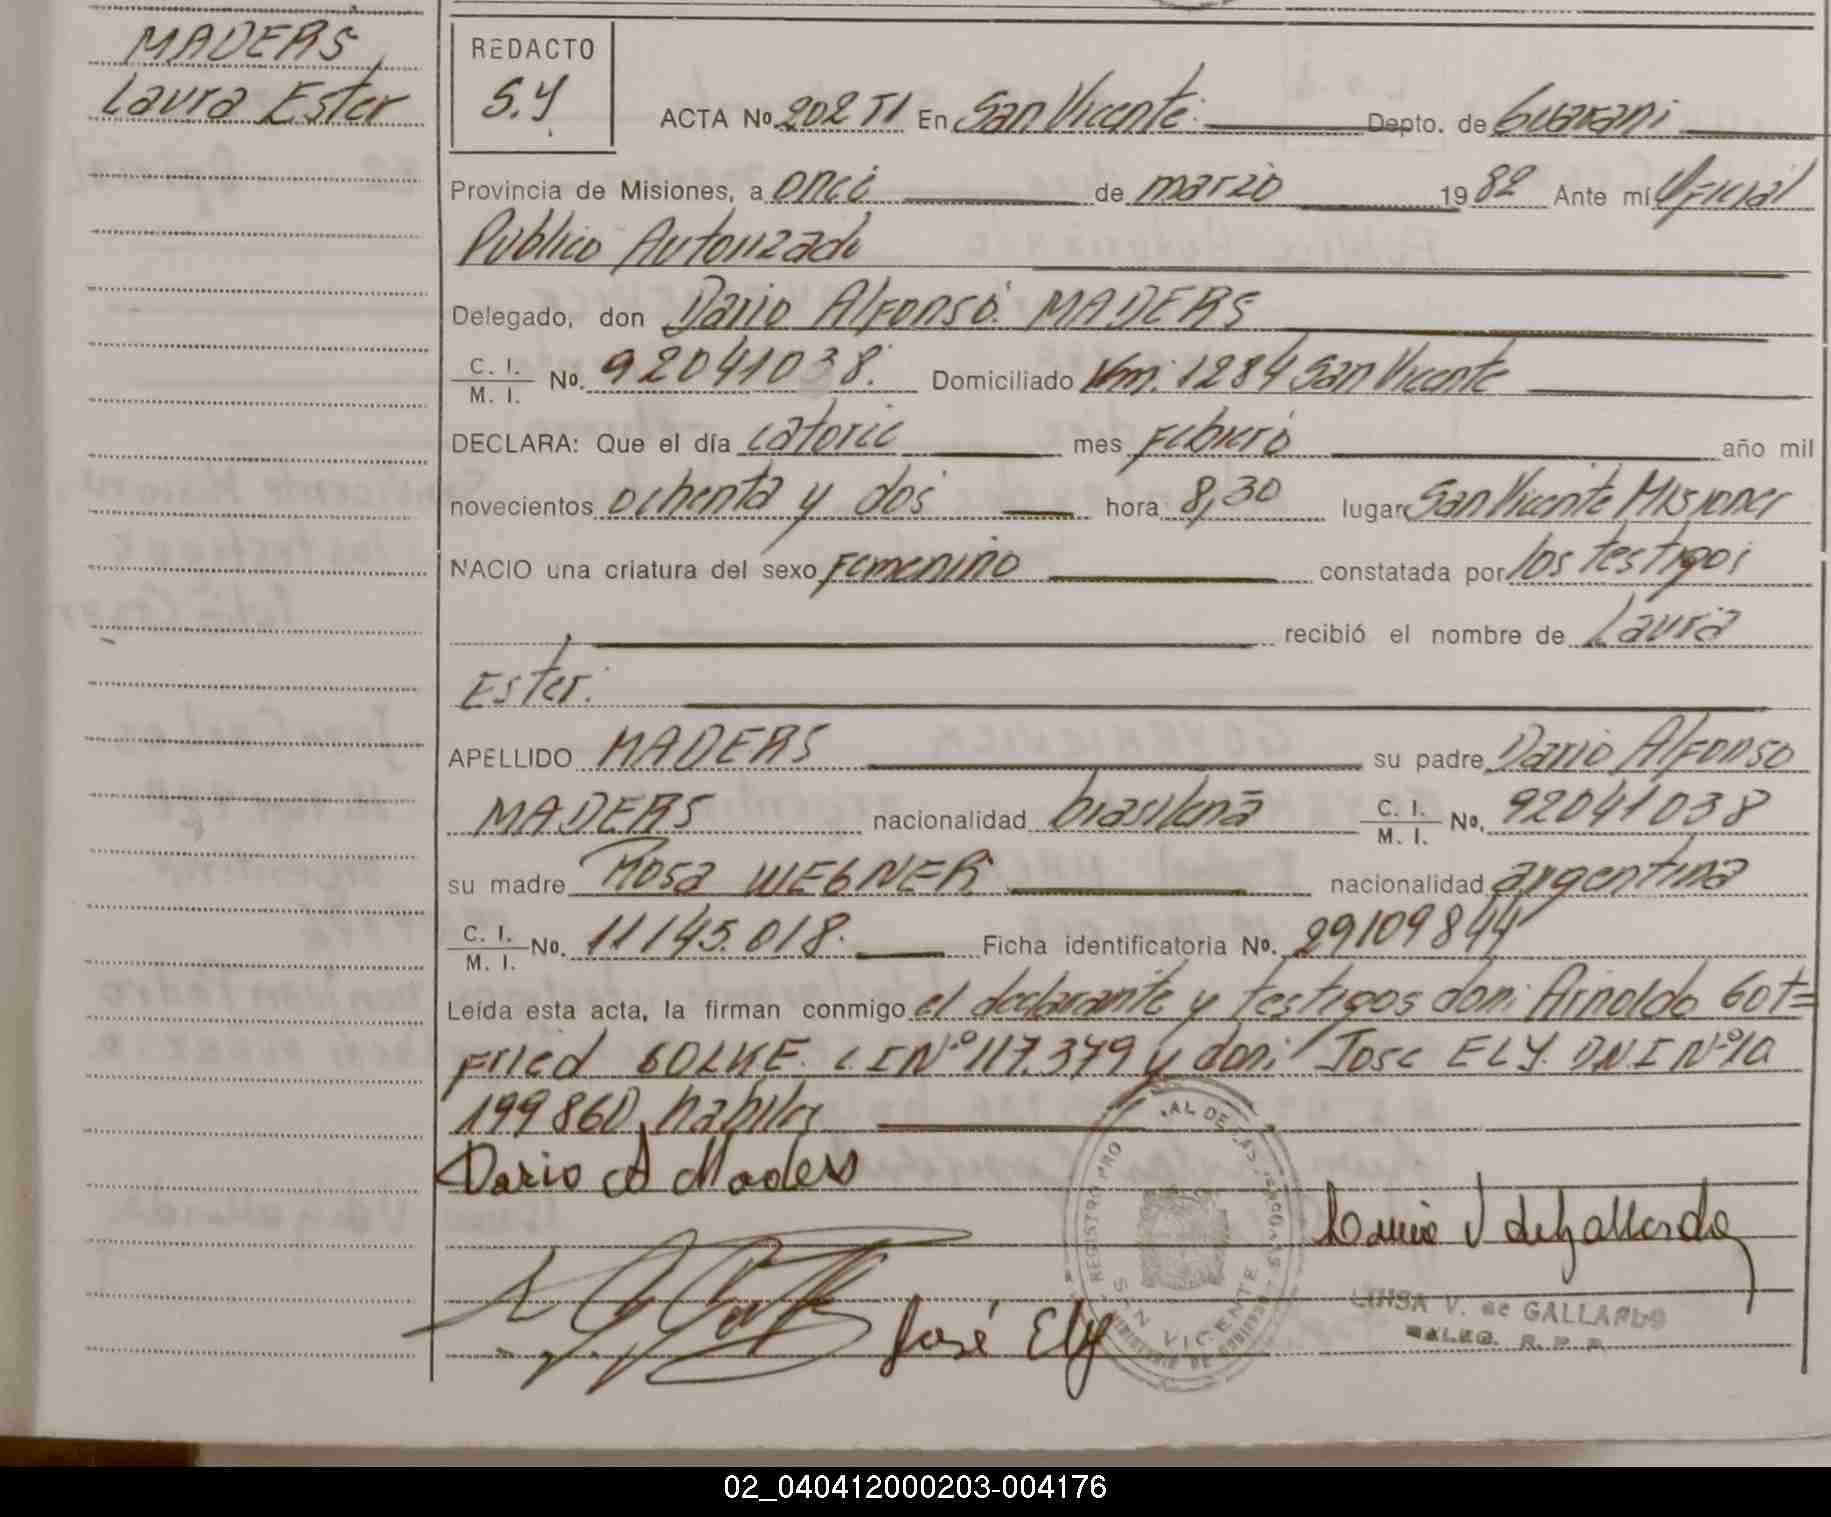 MADERS
Laura Ester
REDACTO
S.Y
ACTA No. 202 TI En San Vicente. Depto. de Guarani
Provincia de Misiones, a once de marzo 1982 Ante mí Oficial
Publico Autorizado
Delegado, don Dario Alfonso MADERS
C. I. / M. I. No. 92041038. Domiciliado Km. 1284 San Vicente
DECLARA: Que el día catorce mes febrero año mil
novecientos ochenta y dos hora 8,30 lugar San Vicente Misiones
NACIO una criatura del sexo femenino constatada por los testigos
recibió el nombre de Laura
Ester.
APELLIDO MADERS su padre Dario Alfonso
MADERS nacionalidad brasilena C. I. / M. I. No. 92041038
su madre Rosa WEGNER nacionalidad argentina
C. I. / M. I. No. 11145.018. Ficha identificatoria No. 29109844
Leída esta acta, la firman conmigo el declarante y testigos don: Arnoldo Got=
fried GOLKE. C.I Nº 117.379 y don: Jose ELY. D.N.I Nº 10
199860, habiles
Dario A Maders
José Ely
REGISTRO PRO AL DE LAS PERSONAS
SAN VICENTE
MINISTERIO DE GOBIERNO
V. de GALLARDO
DELEG. R. P. P.
02_040412000203-004176